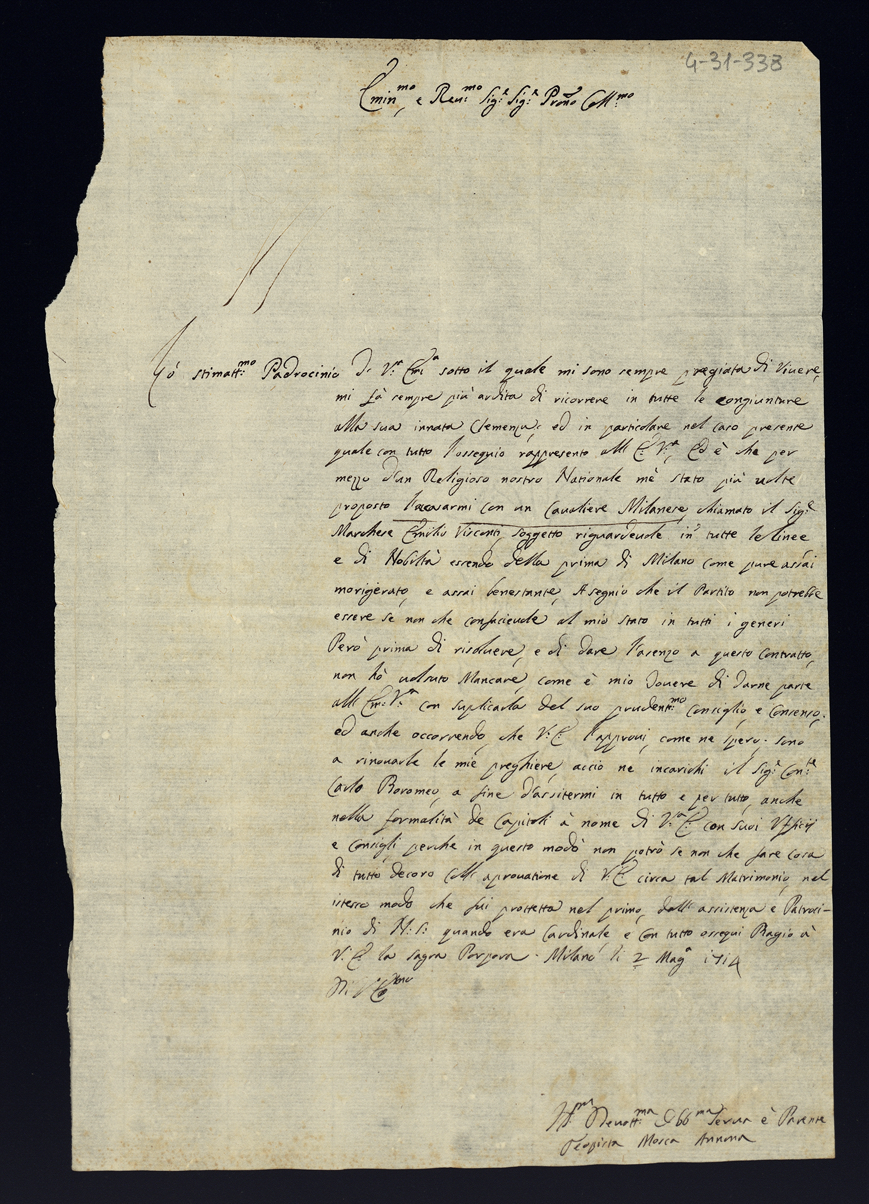 4-31-338
Emin.mo e Reu.mo Sig.r Sig.r Pro͂ne Coll.mo
Lo stimatt.mo Padrocinio di V.ra Em.a sotto il quale mi sono sempre pregiata di Viuere,
mi fà sempre più ardita di ricorrere in tutte le congiunture
alla sua innata Clemenza, ed in particolare nel caso presente
quale con tutto l'ossequio rappresento all' E. V.ra, Ed è che per
mezzo d'un Religioso nostro Nationale m'è stato più uolte
proposto l'accasarmi con un Caualiere Milanese chiamato il Sig.e
Marchese Emilio Visconti, soggetto riguardeuole in tutte le linee
e di Nobiltà essendo della prima di Milano come pure assai
morigerato, e assai benestante, A segnio che il Partito non potrebbe
essere se non che confaceuole al mio stato in tutti i generi
Però prima di risoluere, e di dare l'asenzo a questo contratto,
non hò uolsuto Mancare, come è mio douere di darne parte
all' Em. V.ra con suplicarla del suo prudent.mo Consiglio, e Consenso,
ed anche occorrendo, che V. E. l'approui, come ne spero, sono
a rinouarle le mie preghiere, acciò ne incarichi il Sig.r Con.te
Carlo Boromeo, a fine d'assitermi in tutto e per tutto, anche
nella formalità de Capitoli à nome di V.ra E. con suoi Vfficij
e Consigli perche in questo modo non potrò se non che fare cosa
di tutto decoro coll' aprouatione di V. E. circa tal Matrimonio, nel
istesso modo che fui protetta nel primo, dall' assistenza e Patroci-
nio di N. S. quando era Cardinale e con tutto ossequi Bagio à
V. E. la sagra Porpora. Milano li 2 Mag.o 1714
Di V. E.
H.ma Deuott.ma Obb.ma Serua è Parente
Teopista Mosca Annona